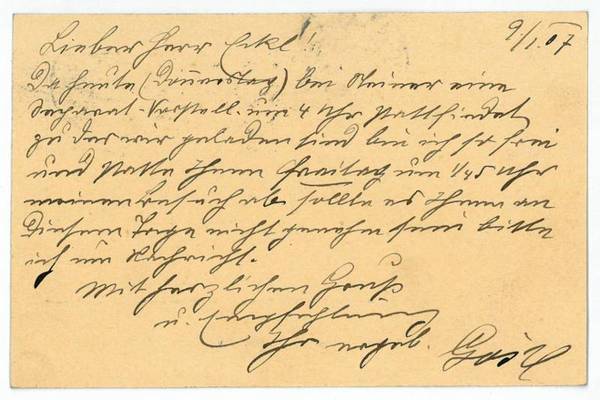 9/1.07
Lieber Herr Eckl!
Da heute (Donnerstag) bei Steiner eine
Separat-Vorstell. um 4 Uhr stattfindet
zu der wir geladen sind bin ich so frei
und statte Ihnen Freitag um 1/45 Uhr
meinen Besuch ab sollte es Ihnen an
diesem Tage nicht genehm sein bitte
ich um Nachricht.
Mit herzlichen Gruß
u. Empfehlung
Ihr ergeb.